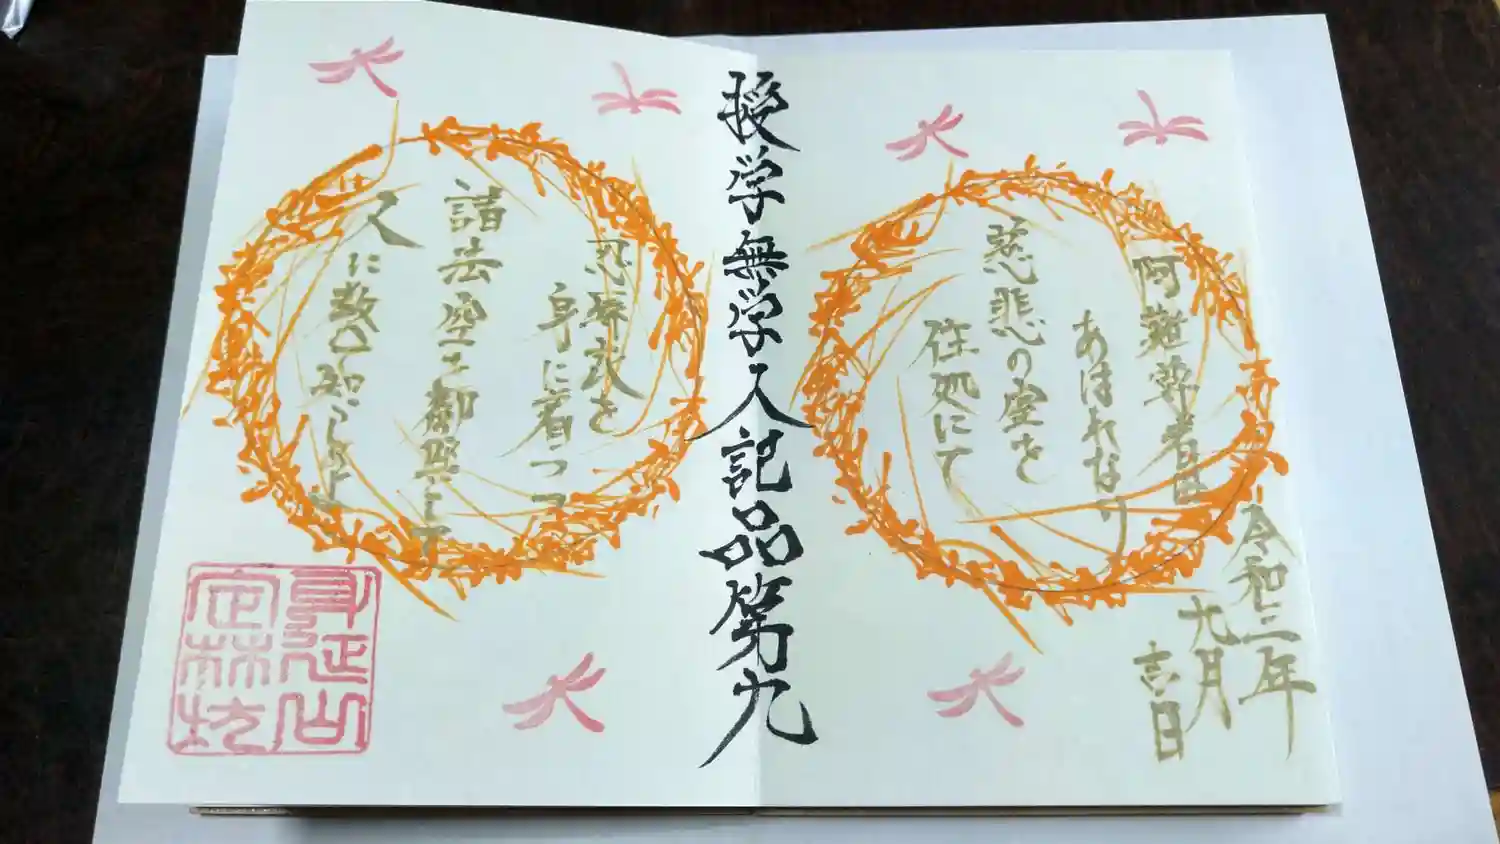 令和三年
九月
吉日
阿難尊者は
あはれなり
慈悲の室を
住処にて
授学無学人記品第九
忍辱衣を
身に着つつ
諸法空を御座として
人に教へて知らしむ
身延山
定林坊